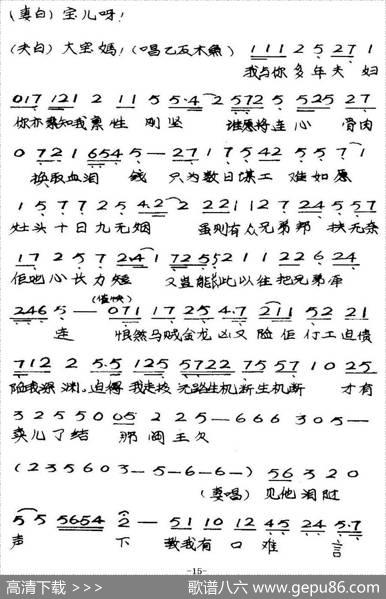 (妻白) 宝儿呀!
(夫白) 大宝妈! (唱乙反木魚) 1 1 1 2 5 2 7 1
我与你多年夫妇
0 1 7 1 2 1 2 1 1 5 5·4 2 5 7 2 5 5 2 5 2 7
你亦素知我素性 刚坚 谁愿将连心 骨肉
0 7 2 1 6 5 4 5 — 2 7 1 7 5 4 2 5 5 7 1
换取血泪 钱 只为数日谋工 难如愿
1 5 7 7 2 5 4·2 2 2 2 1 1 2 7 2 4 5 5 7
灶头十日九无烟 虽则有众兄弟帮 扶无奈
1 7 2 5 7 2·4 1 7 2 5 5 2 1 1 2 2 6 2 4
佢地心长力短 又岂能长此以往把兄弟
2 4 6 5 — 0 7 1 1 7 2 5 4·7 2 1 1 5 2 2 1
连 恨煞马贼金龙凶又险佢行工迫债
7 1 2 2 5·5 1 2 5 5 7 2 2 7 5 5 7 1 0 2 5
险我深渊。迫得我走投无路生机断生机断 才有
3 2 5 5 0 0 5 2 2 5 — 6 6 6 3 0 5 —
卖儿了结 那阎王欠
(2 3 5 6 0 3 — 5 — 6 — 6 —) 5 6 3 2 0
(妻唱) 见他泪
5 5 5 6 5 4 2 — 5 1 1 0 1 2 4 5 2 4 5·7
声 下 教我有口难 言
-15-
高清下载 >>>
歌谱八六 www.gepu86.com